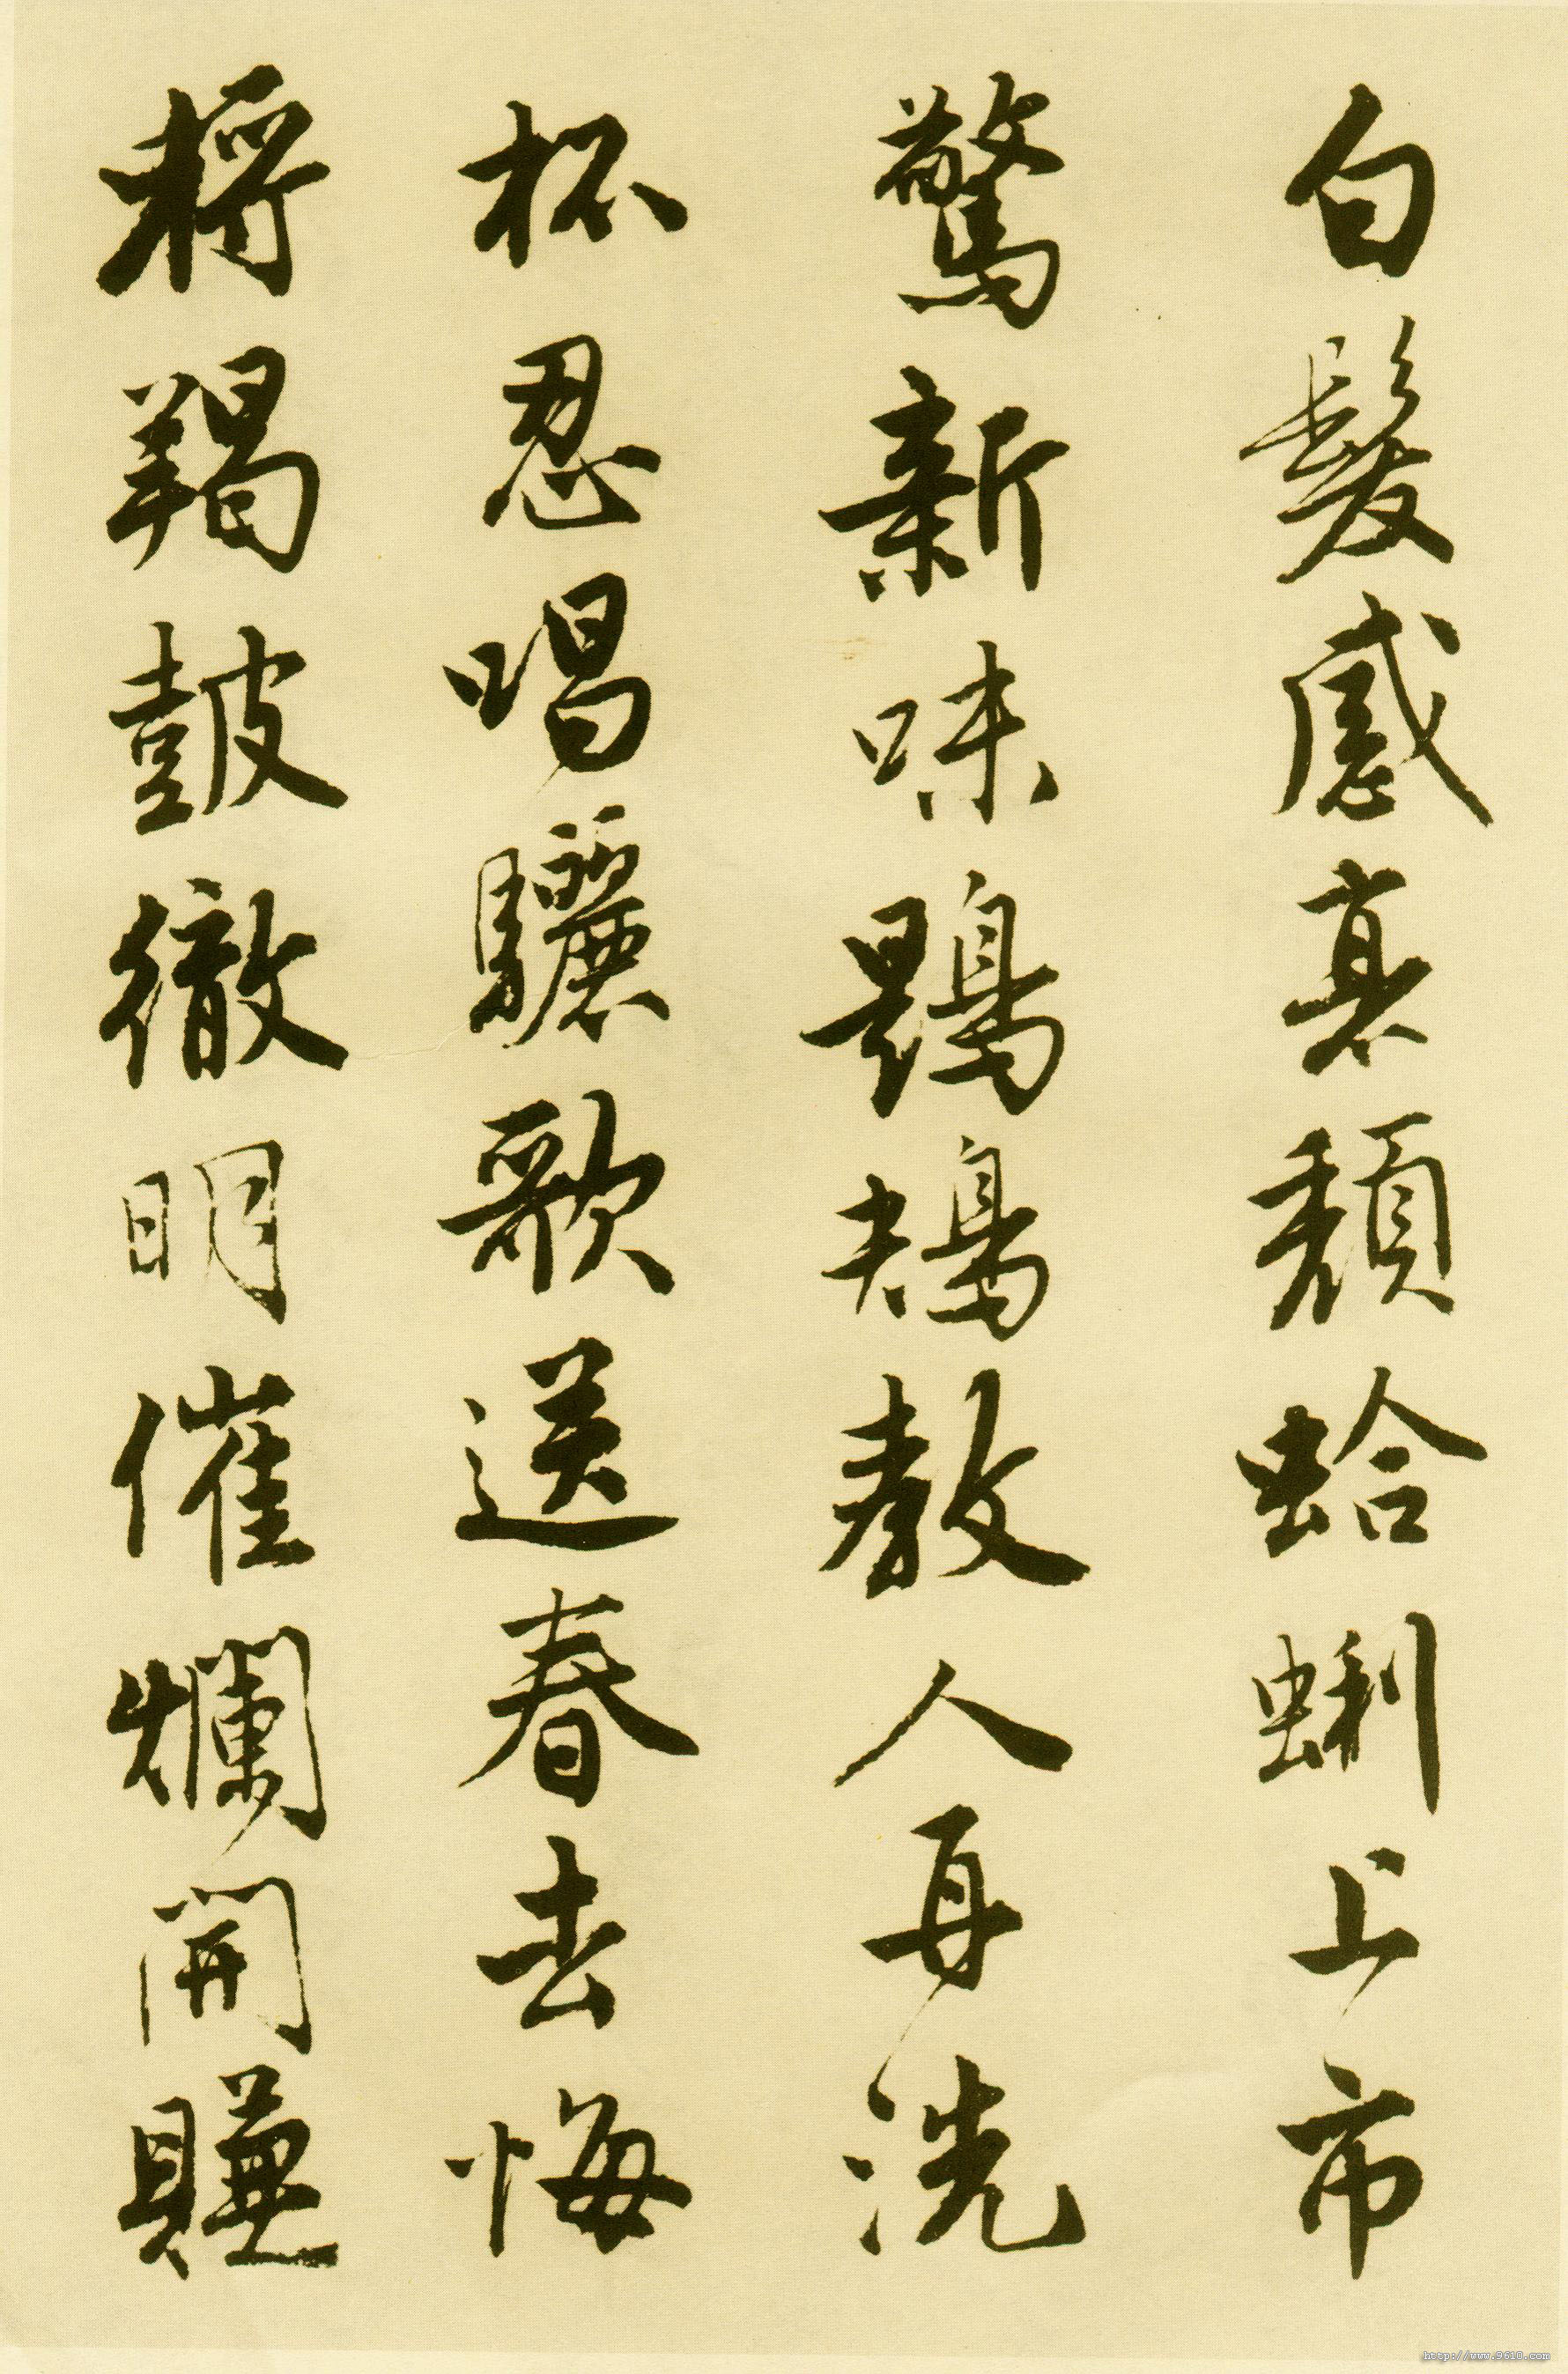 白髮感衰頽蛤蜊上市
驚新味鶗鴂教人再洗
杯忍唱驪歌送春去悔
將羯鼓徹明催爛開賺
http://www.9610.com